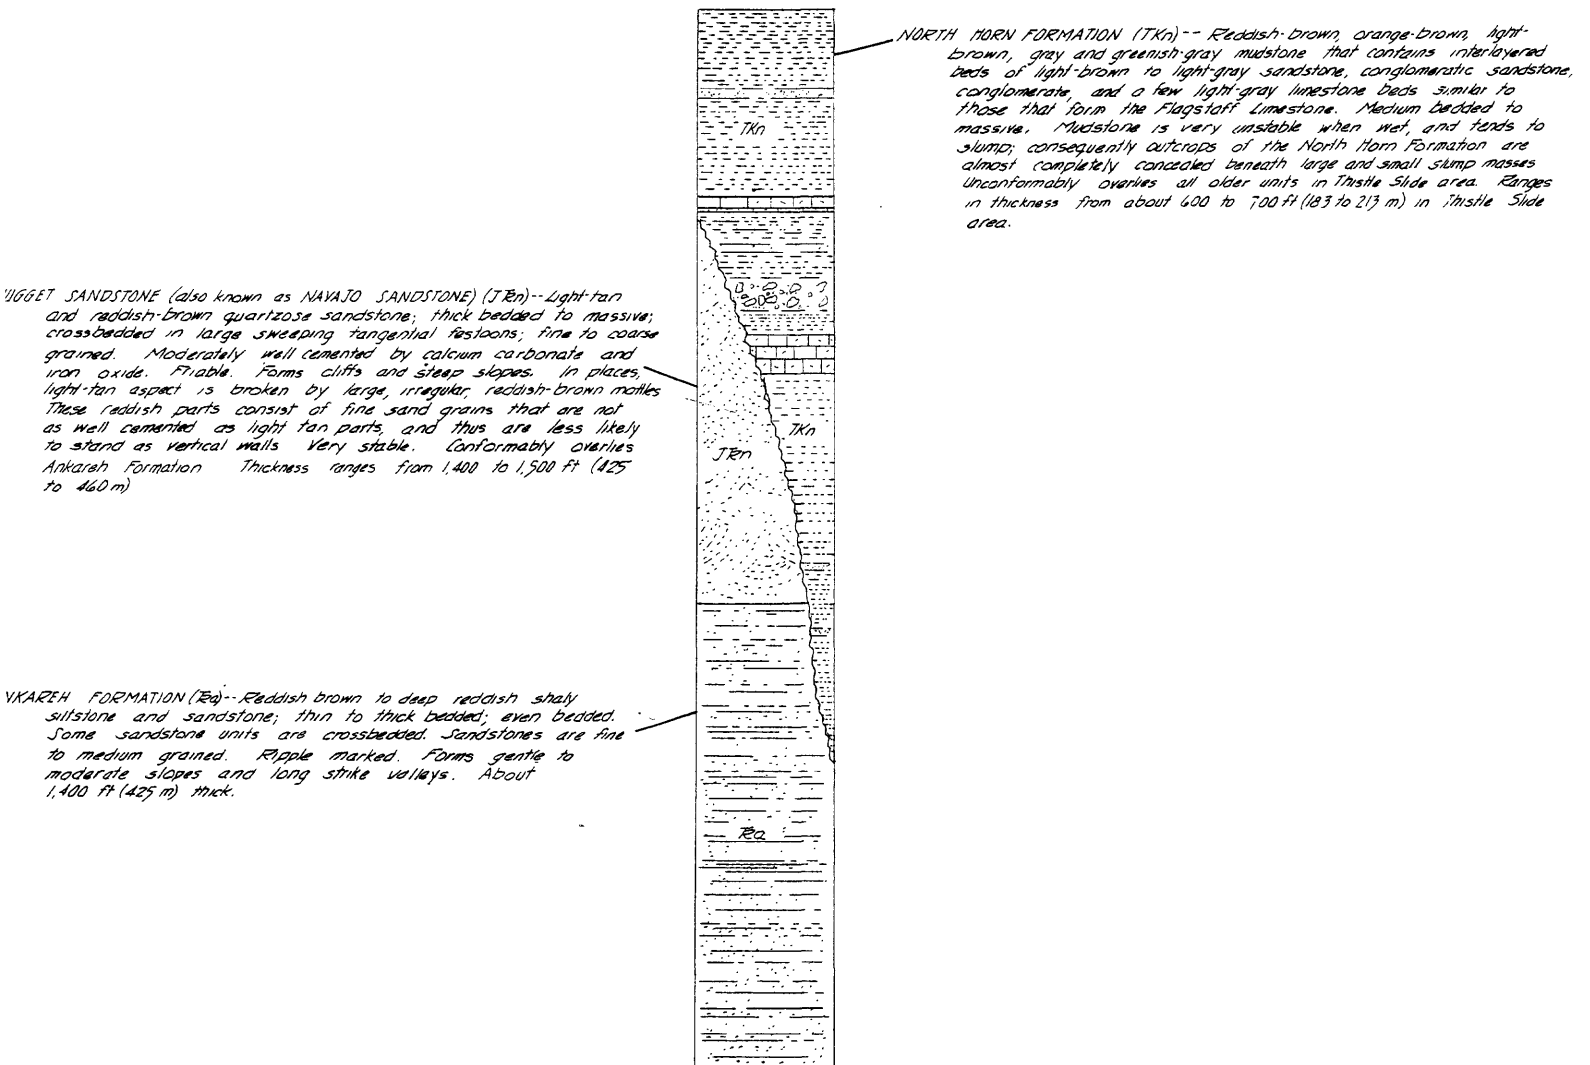 NORTH HORN FORMATION (TKn)-- Reddish-brown, orange-brown, light-
brown, gray and greenish-gray mudstone that contains interlayered
beds of light-brown to light-gray sandstone, conglomeratic sandstone,
conglomerate, and a few light-gray limestone beds similar to
those that form the Flagstaff Limestone. Medium bedded to
massive. Mudstone is very unstable when wet, and tends to
slump; consequently outcrops of the North Horn Formation are
almost completely concealed beneath large and small slump masses
Unconformably overlies all older units in Thistle Slide area. Ranges
in thickness from about 600 to 700 ft (183 to 213 m) in Thistle Slide
area.
TKn
UGGET SANDSTONE (also known as NAVAJO SANDSTONE) (JTRn)--Light-tan
and reddish-brown quartzose sandstone; thick bedded to massive;
crossbedded in large sweeping tangential festoons; fine to coarse
grained. Moderately well cemented by calcium carbonate and
iron oxide. Friable. Forms cliffs and steep slopes. In places,
light-tan aspect is broken by large, irregular, reddish-brown mottles
These reddish parts consist of fine sand grains that are not
as well cemented as light tan parts, and thus are less likely
to stand as vertical walls Very stable. Conformably overlies
Ankareh Formation Thickness ranges from 1,400 to 1,500 ft (425
to 460 m)
TKn
JTRn
NKAREH FORMATION (TRa)--Reddish brown to deep reddish shaly
siltstone and sandstone; thin to thick bedded; even bedded.
Some sandstone units are crossbedded. Sandstones are fine
to medium grained. Ripple marked. Forms gentle to
moderate slopes and long strike valleys. About
1,400 ft (425 m) thick.
TRa